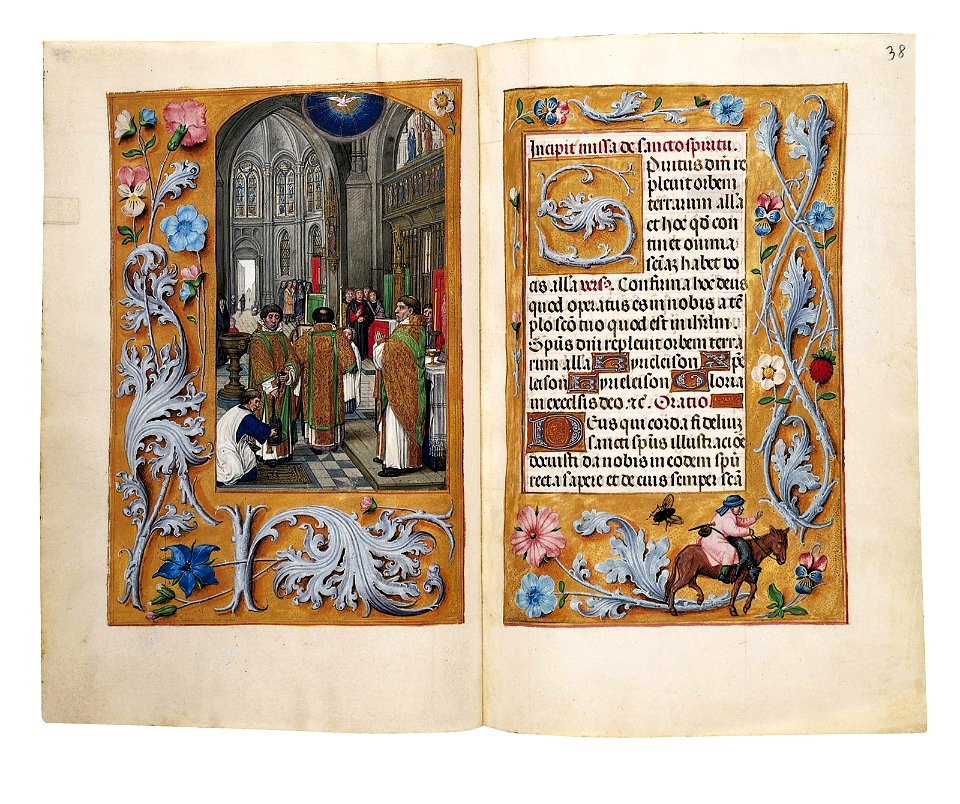 38
Incipit missa de sancto spiritu.
Spiritus dn̄i re
pleuit orbem
terrarum all'a
et hoc qd̄ con
tinet omnia
sc̄iaꝫ habet vo
cis all'a vers. Confirma hoc deus
quod operatus es in nobis a tē
plo sc̄o tuo quod est in ihr̄lm.
Sp̄us dn̄i repleuit orbem terra
rum all'a Kyrieleison Xp̄e
leison Kyrieleison Gloria
in excelsis deo. ⁊c. Oratio
Deus qui corda fideliuꝫ
sancti sp̄us illustratiōe
docuisti da nobis in eodem sp̄u
recta sapere et de eius semper sc̄a